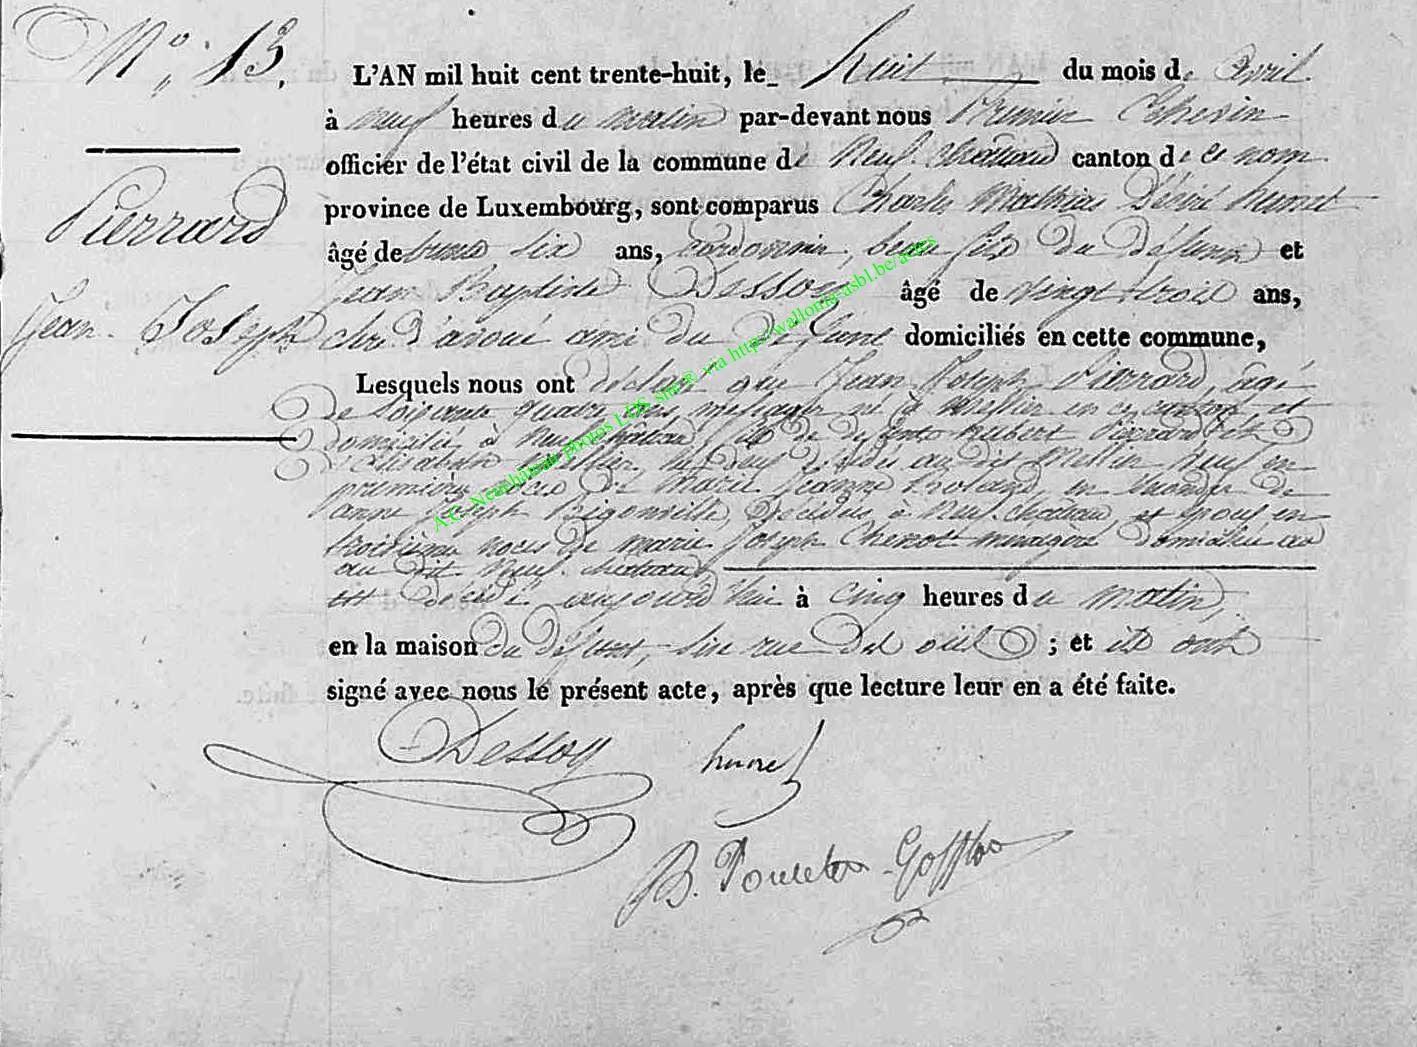 N° 13.
Pierrard
Jean Joseph
L'AN mil huit cent trente-huit, le huit du mois de avril
à neuf heures du matin par-devant nous Premier Echevin
officier de l'état civil de la commune de Neufchâteau canton de ce nom
province de Luxembourg, sont comparus Charles Mathias Désiré hunet
âgé de trente six ans, cordonnier, beau fils du défunt et
Jean Baptiste Dessoy âgé de vingt trois ans,
clerc d'avoué ami du défunt domiciliés en cette commune,
Lesquels nous ont déclaré que Jean Joseph Pierrard, âgé
de soixante quatre ans, messager né à en ce canton et
domicilié à Neufchâteau fils de défunts hubert Pierrard et
d'Elisabeth veuf en
première noces de Marie Jeanne en seconde de
anne Joseph Bigonville, décédée à Neufchâteau, et époux en
troisième noces de marie Joseph Chenot menagère domiciliée au
au dit Neufchâteau
est décédé aujourd'hui à cinq heures du matin,
en la maison du défunt, sise rue ; et ils ont
signé avec nous le présent acte, après que lecture leur en a été faite.
Dessoy hunet
B.
A.C. Neufchâteau photos LDS site® via http://wallonia-asbl.be/actes